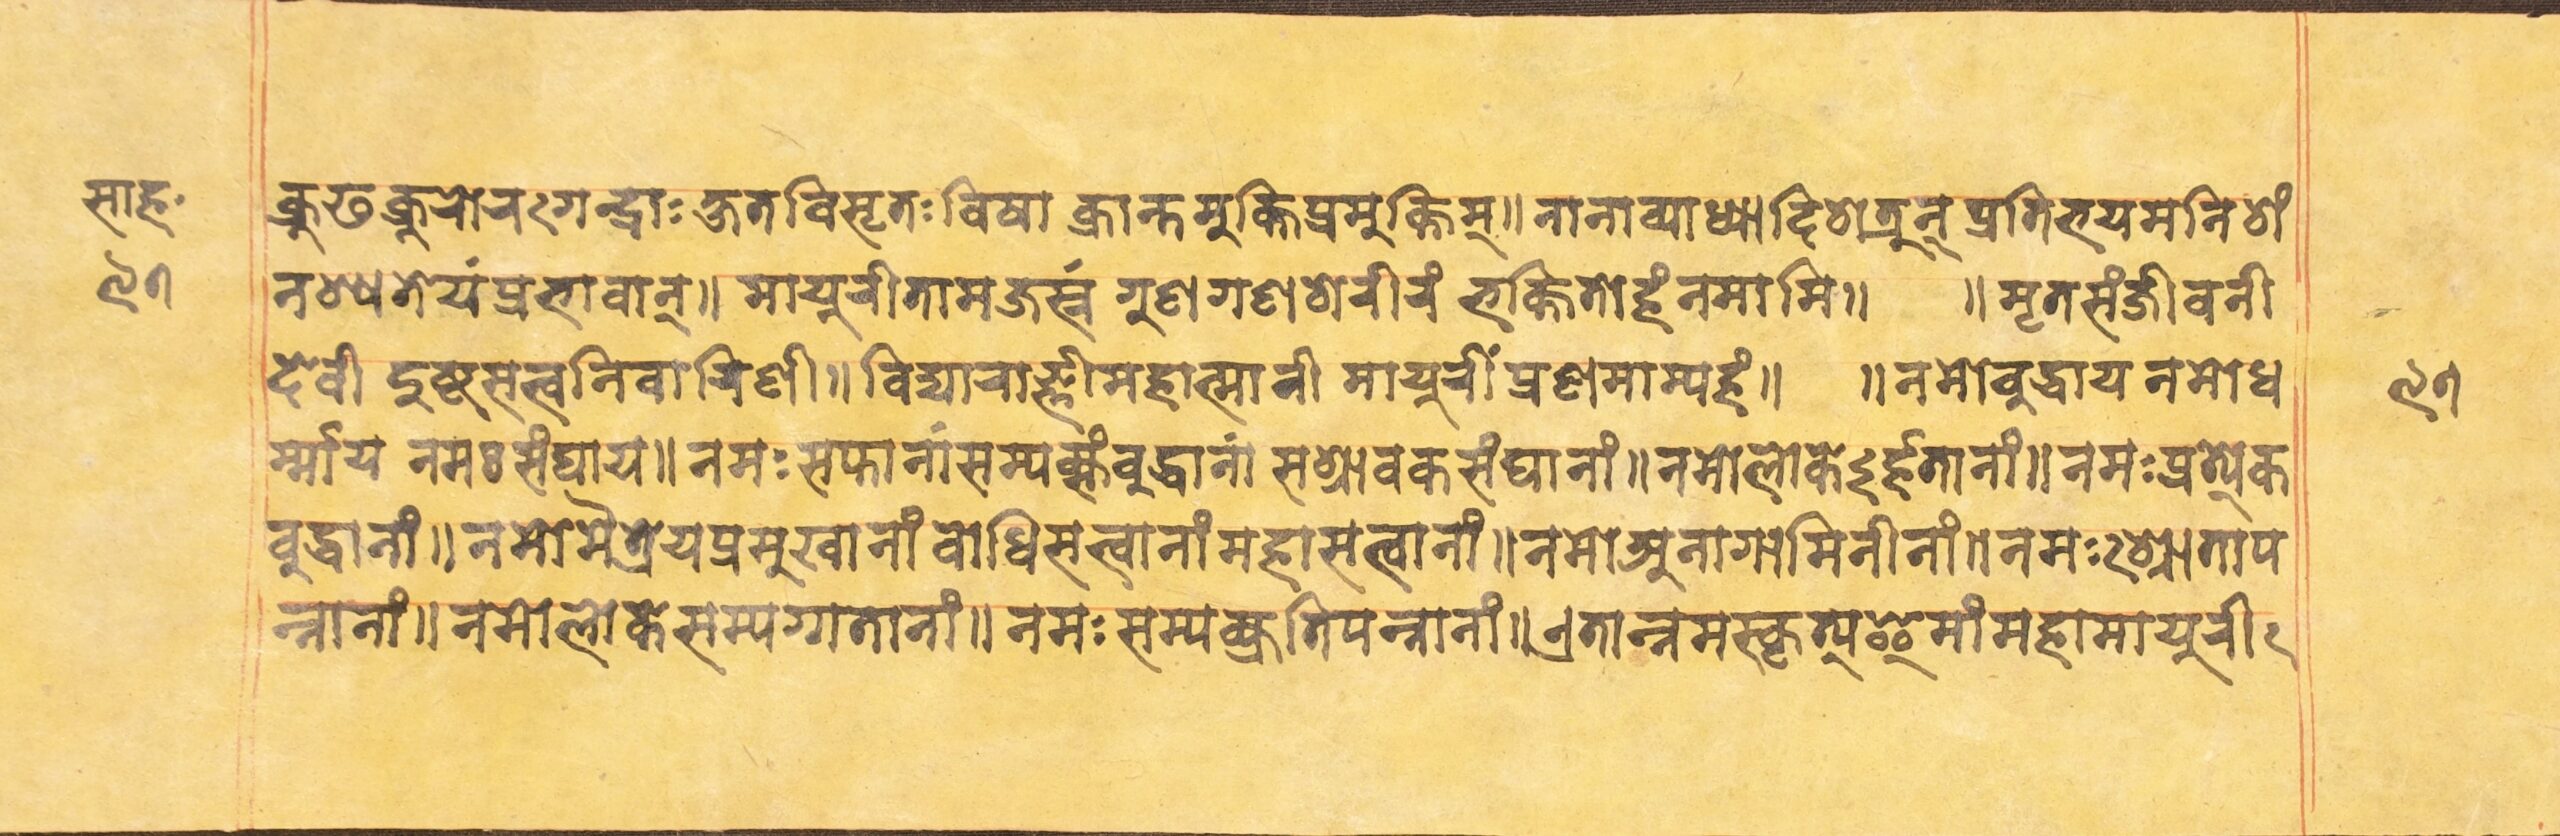 साह॰
𑑙𑑑
क्रुछक्रुरोरःगन्द्राः कृतविसृतः विषा क्रान्तमुक्तिप्रमुक्तिम्॥ नानाव्याध्यादिशत्रुन् प्रतिभयमनिशं
नश्यतेयंप्रभावान्॥ मायुरीतामजस्नं गुणगणशरीरं भक्तितोहंनमामि॥ ॥मृतसंजीवनी
देवी दुष्टसत्वनिवारिणी॥ विद्याराज्ञीमहात्मानी मायुरीं प्रणमाम्यहं॥ ॥नमोबुद्धाय नमोध
र्म्माय नमः संघाय॥ नमः सप्तानांसम्यक्संबुद्धानां सश्रावकसंघानां॥ नमोलोकेऽर्हतानां॥ नमःप्रत्येक
बुद्धानां॥ नमोमैत्रेयप्रमुखानां बोधिसत्वानांमहासत्वानां॥ नमोअनागामिनीनां॥ नमःश्रोताप
न्नानां॥ नमोलोकेसम्यग्गतानां॥ नमः सम्यक्प्रतिपन्नानां॥ एतान्नमस्कृत्य इमांमहामायुरी
𑑙𑑑